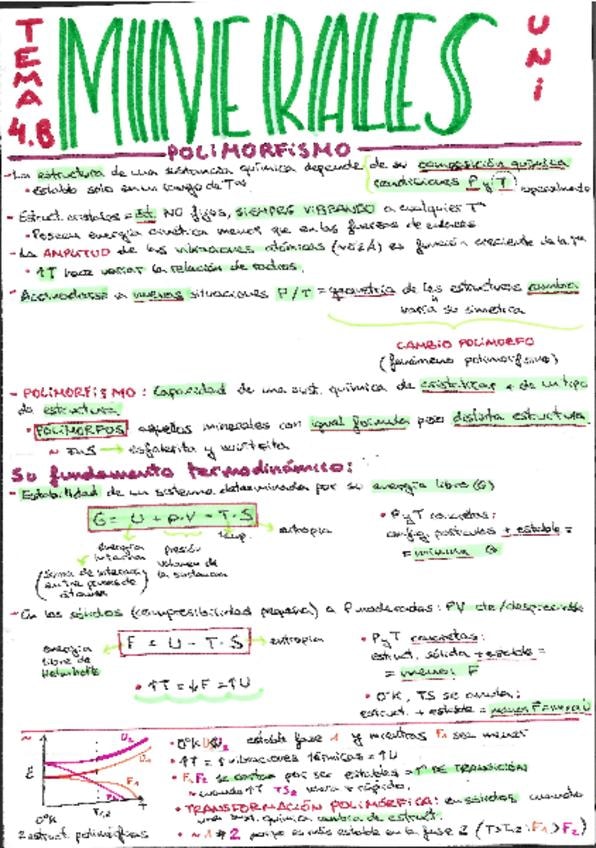 TEMA 4.B
MINERALES
UNI
POLIMORFISMO
- La estructura de una sustancia química depende de su composición química
condiciones P y T
• estable solo en un rango de Tas
- Estruct. cristales = át. NO fijos, SIEMPRE VIBRANDO a cualquier Tª
• Poseen energía cinética menor que en las fuerzas de enlace
- La AMPLITUD de las vibraciones atómicas es función creciente de la Tª
• ↑T hace variar la relación de radios.
- Acomodarse a nuevas situaciones P/T = geometría de las estructuras cambia
varía su simetría
CAMBIO POLIMORFO
(fenómeno polimorfismo)
- POLIMORFISMO: Capacidad de una sust. química de cristalizar + de un tipo
de estructura.
• POLIMORFOS aquellos minerales con igual formula pero distinta estructura.
~ ZnS → esfalerita y wurtzita
Su fundamento termodinámico:
- Estabilidad de un sistema determinada por su energía libre (G)
G = U + P·V - T·S
entropia
temp.
energía interna
presión
volumen de la sustancia
• P y T concretas:
config. partículas + estable =
= mínima G
- En los sólidos (compresibilidad pequeña) a P moderadas: PV cte/despreciable
energía libre de Helmholtz
F = U - T·S
entropia
• ↑T = ↓F = ↑U
• P y T concretas:
estruct. sólida + estable =
= menor F
• 0ºK, TS se anula:
estruct. + estable = menor F = menor U
E
U2
U1
F1
F2
0ºK
T1,2
T
2 estruct. polimórficas
estable fase 1 y mientras F1 sea menor
• ↑T = ↑ vibraciones térmicas = ↑U
• F1 F2 se cortan por ser estables = Tª DE TRANSICIÓN
~ cuando ↑T TS2 varía + rápido.
• TRANSFORMACIÓN POLIMÓRFICA: en sólidos cuando
una sust. química cambia de estruct.
~ 1 ≠ 2 porque es más estable en la fase 2 (T>T1,2: F1 > F2)